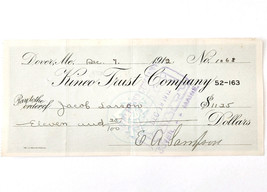 Dover, Me. Dec. 7 1912 No. 1068
Kineo Trust Company 52-163
Pay to the order of Jacob Larson $11.25
Eleven and 25/100 Dollars
E. A. Sampson